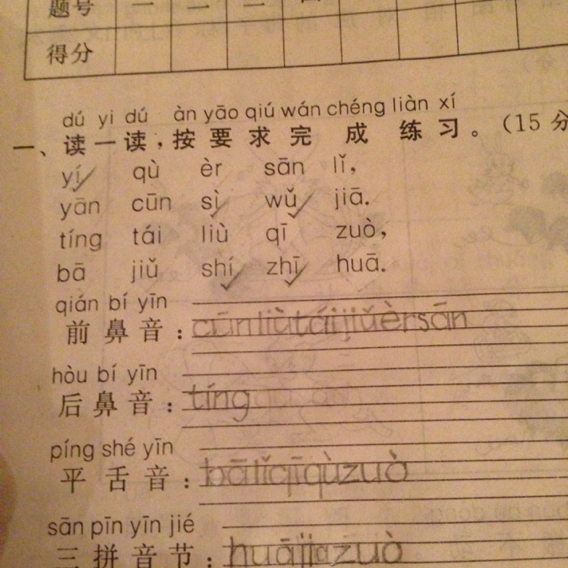 题号 一 二
得分
dú yi dú àn yāo qiú wán chéng liàn xí
一、读一读，按要求完成练习。(15 分
yí qù èr sān lǐ,
yān cūn sì wǔ jiā.
tíng tái liù qī zuò,
bā jiǔ shí zhī huā.
qián bí yīn
前鼻音：cūnliùtáijiǔèrsān
hòu bí yīn
后鼻音：tíng
píng shé yīn
平舌音：bālǐqīqùzuò
sān pīn yīn jié
三拼音节：huājiazuò